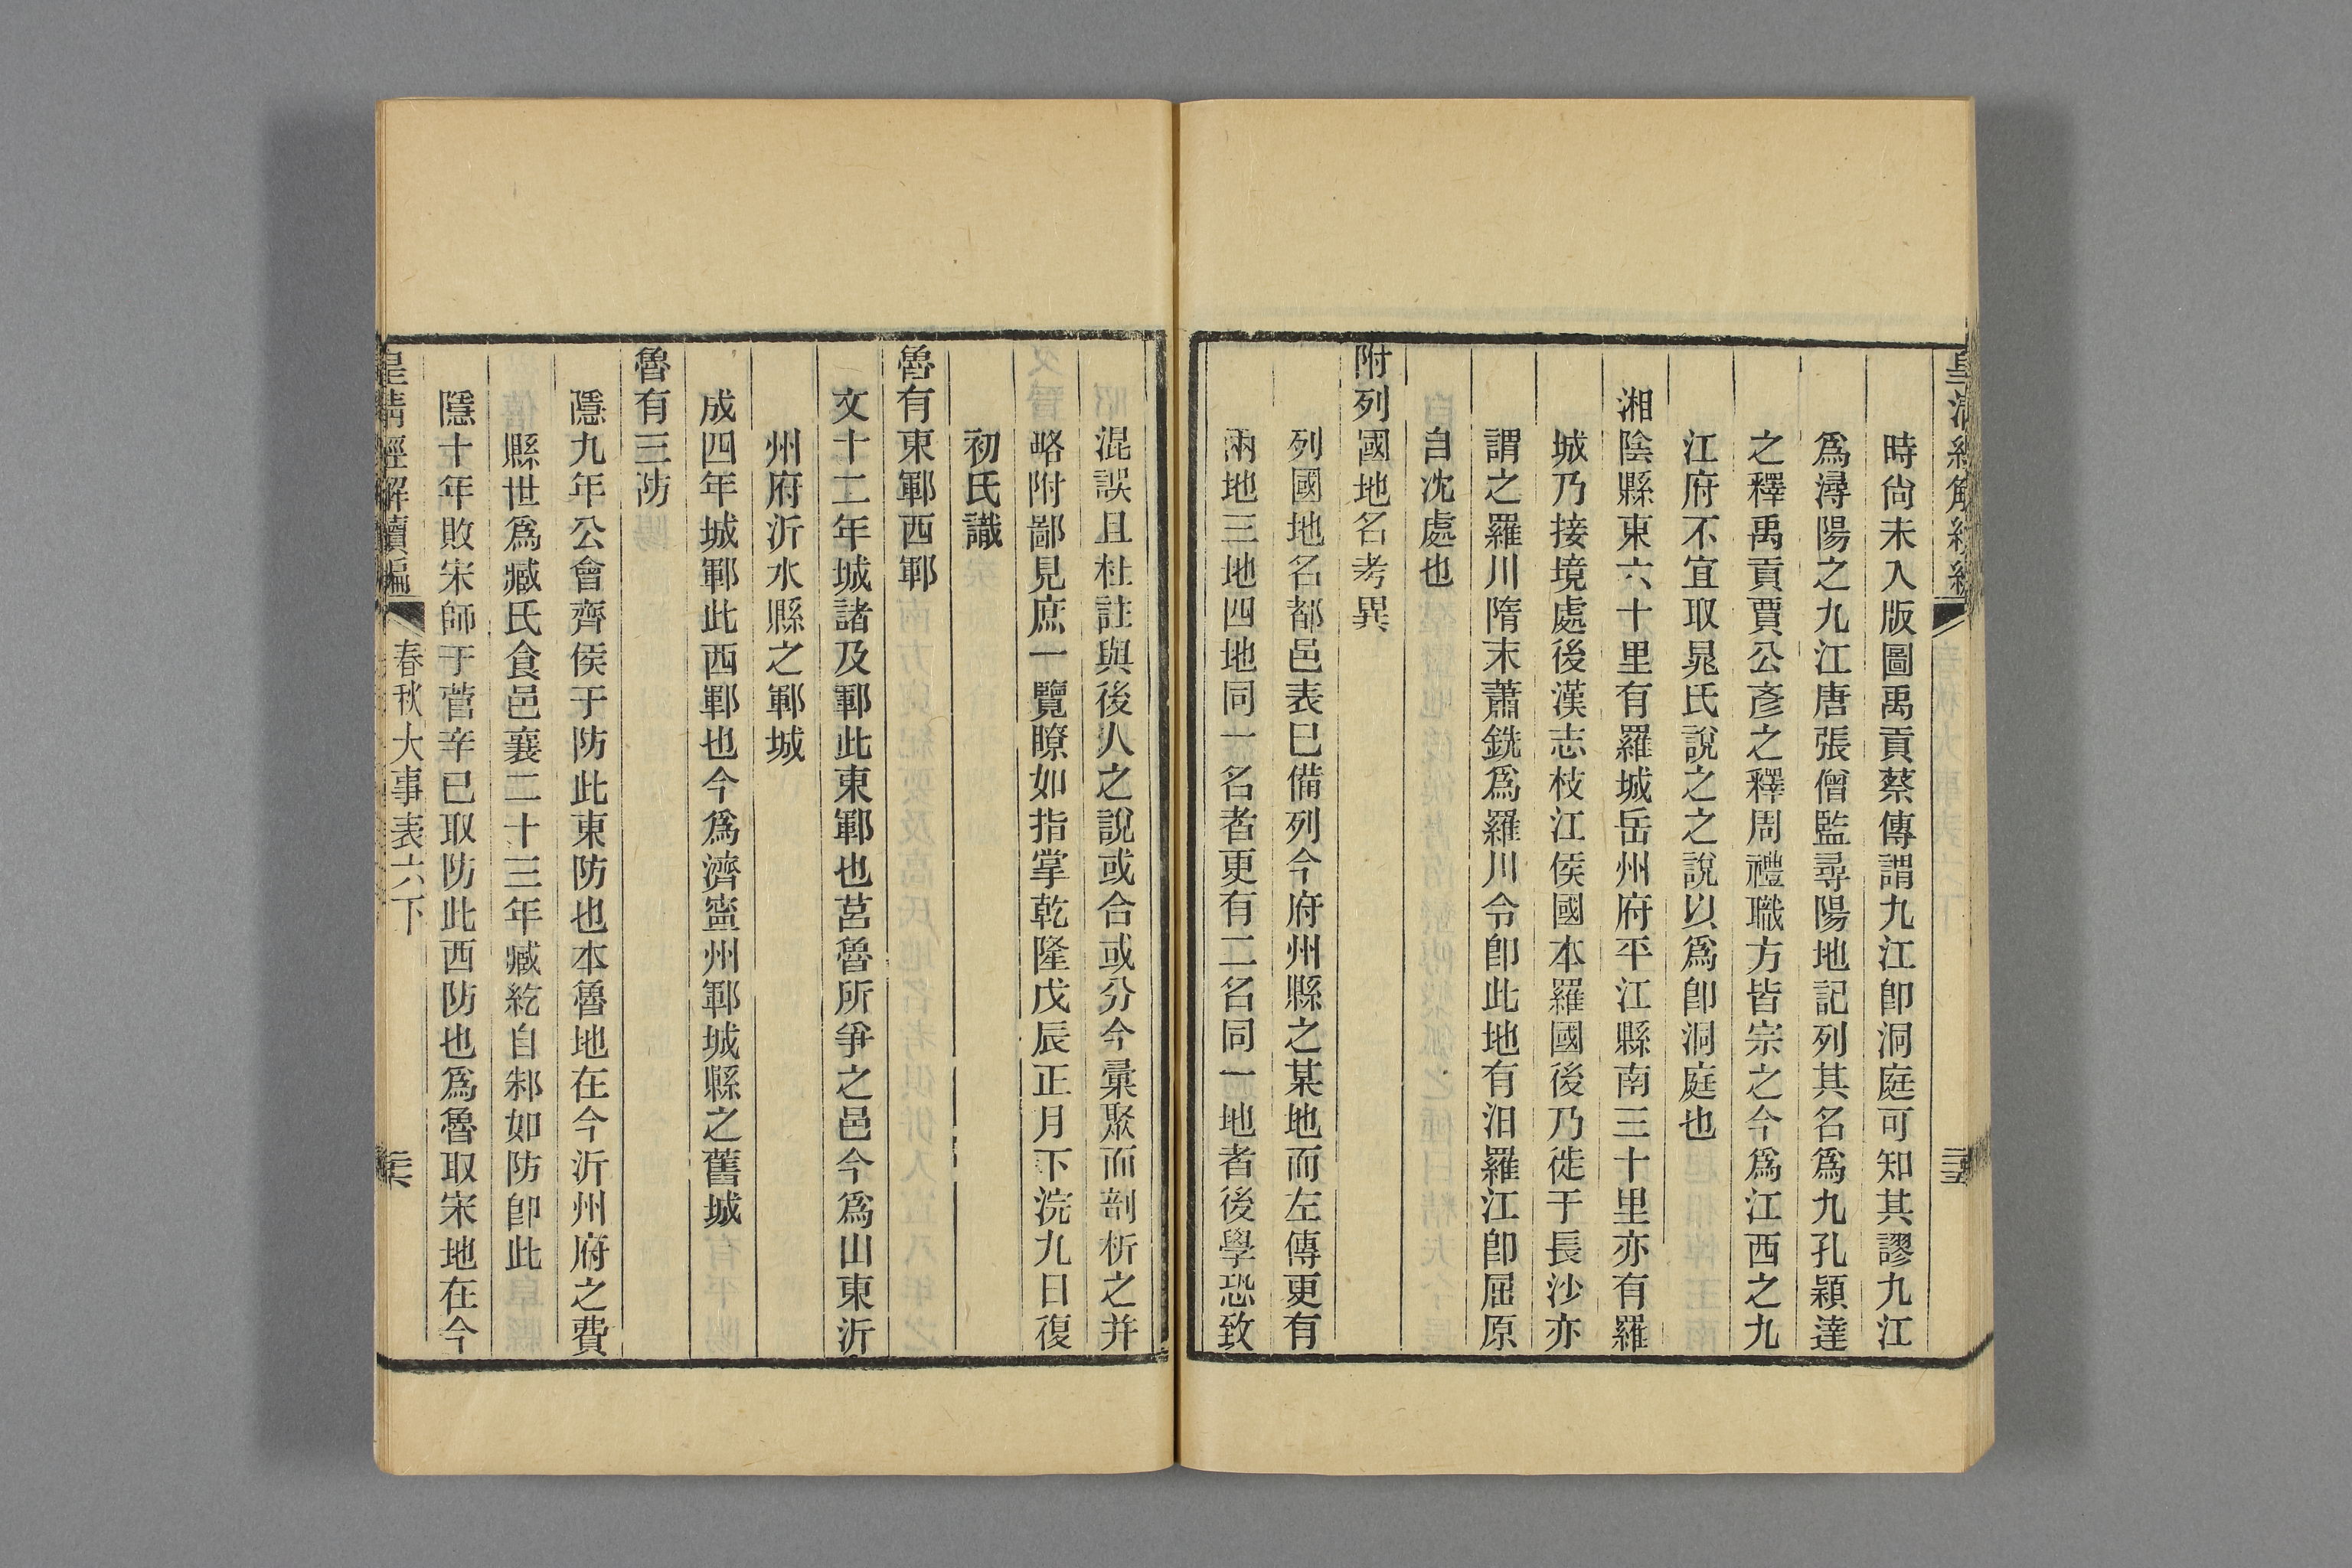 時尙未入版圖禹貢蔡傳謂九江卽洞庭可知其謬九江
爲潯陽之九江唐張僧監尋陽地記列其名爲九孔穎達
之釋禹貢賈公彥之釋周禮職方皆宗之今爲江西之九
江府不宜取晁氏說之之說以爲卽洞庭也
湘陰縣東六十里有羅城岳州府平江縣南三十里亦有羅
城乃接境處後漢志枝江侯國本羅國後乃徙于長沙亦
謂之羅川隋末蕭銑爲羅川令卽此地有汨羅江卽屈原
自沈處也
附列國地名考異
列國地名都邑表巳備列今府州縣之某地而左傳更有
兩地三地四地同一名者更有二名同一地者後學恐致
混誤且杜註與後人之說或合或分今彙聚而剖析之并
略附鄙見庶一覽瞭如指掌乾隆戊辰正月下浣九日復
初氏識
魯有東鄆西鄆
文十二年城諸及鄆此東鄆也莒魯所爭之邑今爲山東沂
州府沂水縣之鄆城
成四年城鄆此西鄆也今爲濟寧州鄆城縣之舊城
魯有三防
隱九年公會齊侯于防此東防也本魯地在今沂州府之費
縣世爲臧氏食邑襄二十三年臧紇自邾如防卽此
隱十年敗宋師于菅辛巳取防此西防也爲魯取宋地在今
皇淸經解續編 春秋大事表六下